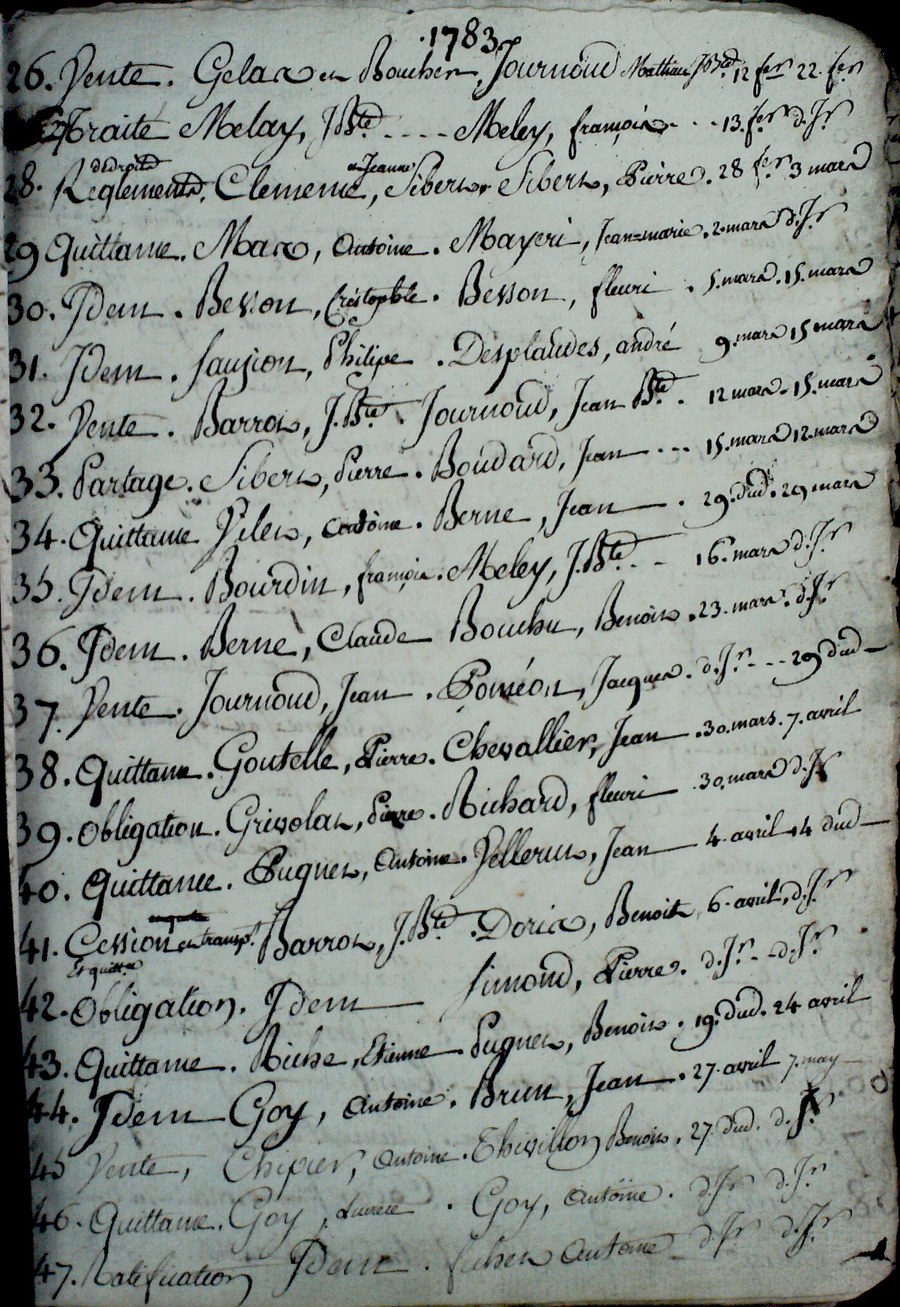 1783
26. Vente. Gelas et Boucher. Journoud Mathieu J.Bte. 12 fer 22. fer
27 Traité Melay, J.Bte .... Meley, françois. .. 13. fer d. Jr
de droits et Jeanne
28. Reglement. Clemence, Sibert. Sibert, Pierre. 28 fer 3 mars
29 Quittance. Max, Antoine. Mayeri, Jean=marie. 2. mars d. Jr
30. Idem. Besson, Cristophle. Besson, fleuri. 5. mars. 15. mars
31. Idem. faujion, Philipe. Desplaudes, andré 9. mars 15 mars
32. Vente. Barrot, J.Bte. Journoud, Jean Bte. 12 mars. 15. mars
33. Partage. Sibert, Pierre. Boudard, Jean ... 15. mars 12. mars
34. Quittance Pilet, antoine. Berne, Jean. 29. dud. 29 mars
35. Idem. Bourdin, françois. Meley, J.Bte. - 16. mars d. Jr
36. Idem. Berne, Claude Bouchu, Benoit. 23. mars. d. Jr
37. Vente. Journoud, Jean. Poméon, Jacques. d. Jr. -- 29 dud
38. Quittance. Goutelle, Pierre. Chevallier, Jean. 30. mars. 7. avril
39. Obligation. Grivolat, Pierre. Richard, fleuri 30. mars d. Jr
40. Quittance. Pugnet, Antoine. Pellerin, Jean 4 avril 14 dud
41. Cession et transpt. Barrot, J.Bte. Doria, Benoit, 6. avril, d. Jr
Et quittce
42. Obligation. Idem Simond, Pierre. d. Jr. - d. Jr.
43. Quittance. Riche, Etienne Pugnet, Benoit. 19. dud. 24 avril
44. Idem Goy, Antoine. Brun, Jean. 27. avril 7. may
45 Vente, Chipier, Antoine. Thivillon Benoit. 27. dud. d. Jr
46. Quittance. Goy, . Goy, Antoine. d. Jr d. Jr
47. Ratification Idem. Antoine d. Jr d. Jr